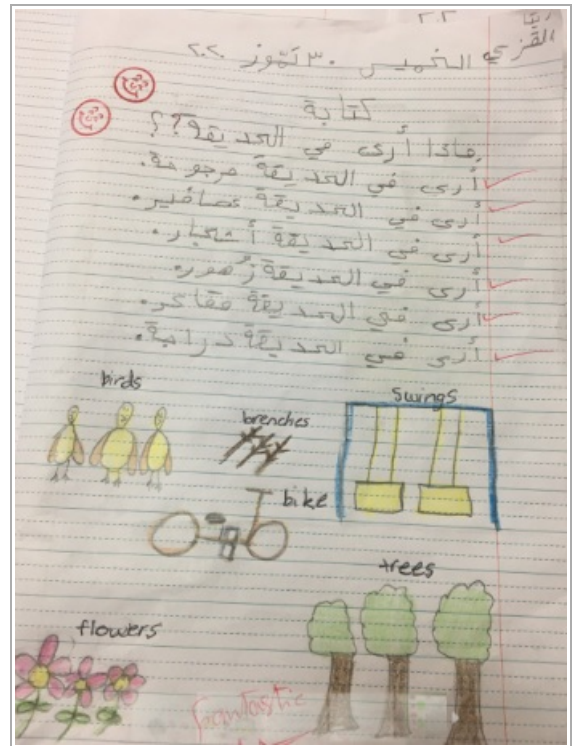 الخميس ٣٠ تَمّوز ٢٠٢٠
كتابة
ماذا أرى في الحديقة؟؟
أرى في الحديقة مرجوحة.
أرى في الحديقة عصافير.
أرى في الحديقة أشجار.
أرى في الحديقة زُهور.
أرى في الحديقة مقاعد.
أرى في الحديقة دراجة.
birds
swings
brenches
bike
trees
flowers
fantastic